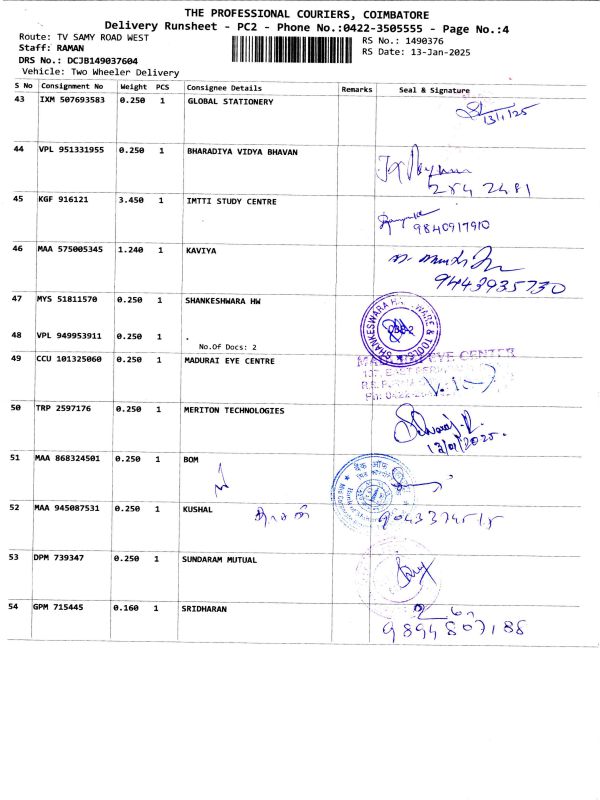 THE PROFESSIONAL COURIERS, COIMBATORE
Delivery Runsheet - PC2 - Phone No.:0422-3505555 - Page No.:4
Route: TV SAMY ROAD WEST
RS No.: 1490376
Staff: RAMAN
RS Date: 13-Jan-2025
DRS No.: DCJB149037604
Vehicle: Two Wheeler Delivery
S No Consignment No Weight PCS Consignee Details Remarks Seal & Signature
43 IXM 507693583 0.250 1 GLOBAL STATIONERY
13/1/25
44 VPL 951331955 0.250 1 BHARADIYA VIDYA BHAVAN
254 2481
45 KGF 916121 3.450 1 IMTTI STUDY CENTRE
9840917910
46 MAA 575005345 1.240 1 KAVIYA
9443935730
47 MYS 51811570 0.250 1 SHANKESWARA HW
SHANKESWARA HARDWARE & TOOLS
48 VPL 949953911 0.250 1 .
No.Of Docs: 2
49 CCU 101325060 0.250 1 MADURAI EYE CENTRE
EYE CENTER
50 TRP 2597176 0.250 1 MERITON TECHNOLOGIES
13/01/2025.
51 MAA 868324501 0.250 1 BOM
52 MAA 945087531 0.250 1 KUSHAL
53 DPM 739347 0.250 1 SUNDARAM MUTUAL
54 GPM 715445 0.160 1 SRIDHARAN
9894807188